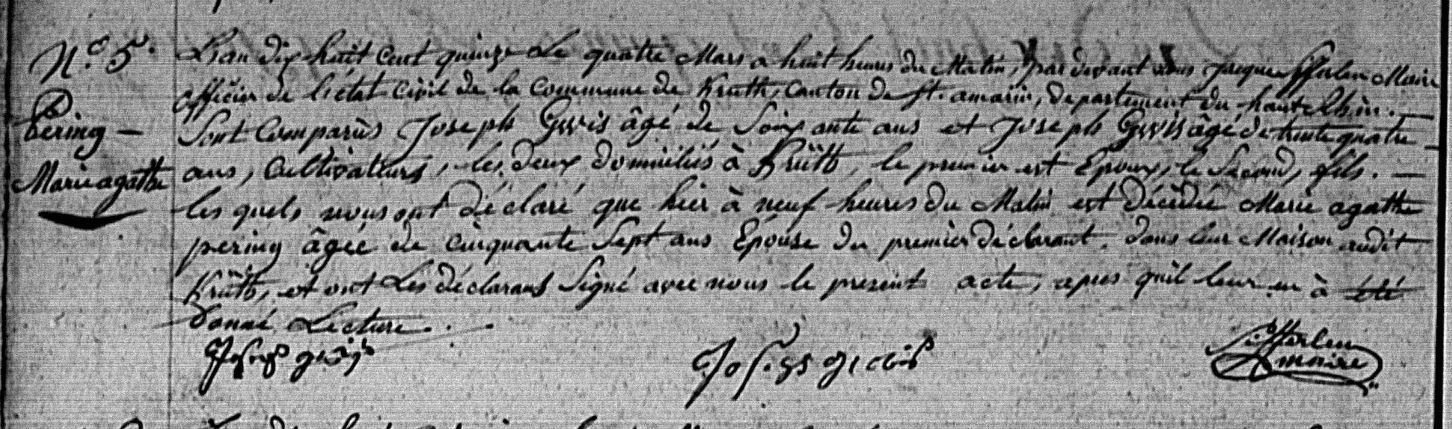 N.° 5.
Pering —
Marie agathe
L'an dix huit cent quinze Le quatre Mars à huit heures du Matin, par devant nous Jacque Sifferlen Maire
officier de l'état civil de la Commune de Krüth, Canton de St. amarin, departement du haut Rhin. —
Sont Comparûs Joseph Gwis âgé de Soixante ans et Joseph Gwis âgé de trente quatre —
ans, Cultivateurs, les deux domiciliés à Krüth, le premier est Epoux, le Second, fils. —
les quels nous ont déclaré que hier à neuf heures du Matin est décédée Marie agathe
pering âgée de cinquante Sept ans Epouse du premier déclarant. dans leur Maison audit
Krüth, et ont Les déclarans Signé avec nous le present acte, apres qu'il leur en à été
donné Lecture.
Joseph gwis Joseph gwis Sifferlen
maire